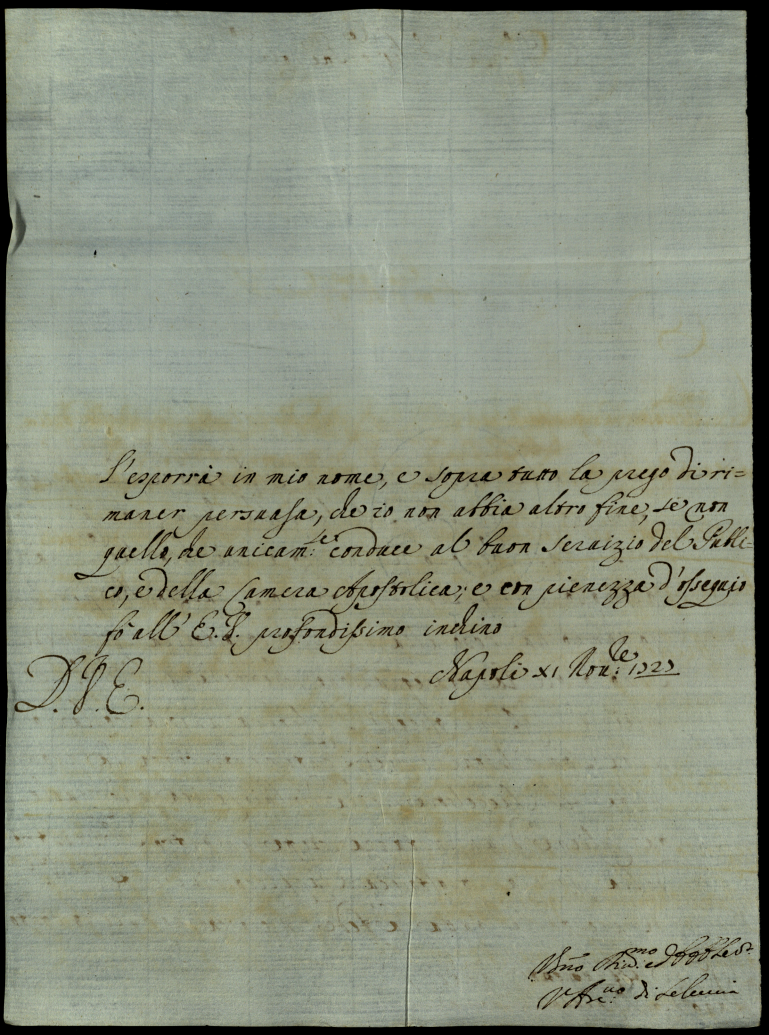 l'esporrà in mio nome, e sopra tutto la prego di ri=
maner persuasa, che io non abbia altro fine, se non
quello, che unicam:te conduce al buon servizio del Publi=
co, e della Camera Apostolica; e con pienezza d'ossequio
fò all' E. V. profondissimo inchino
D. V. E. Napoli XI Nov:re 1727
di Seleucia